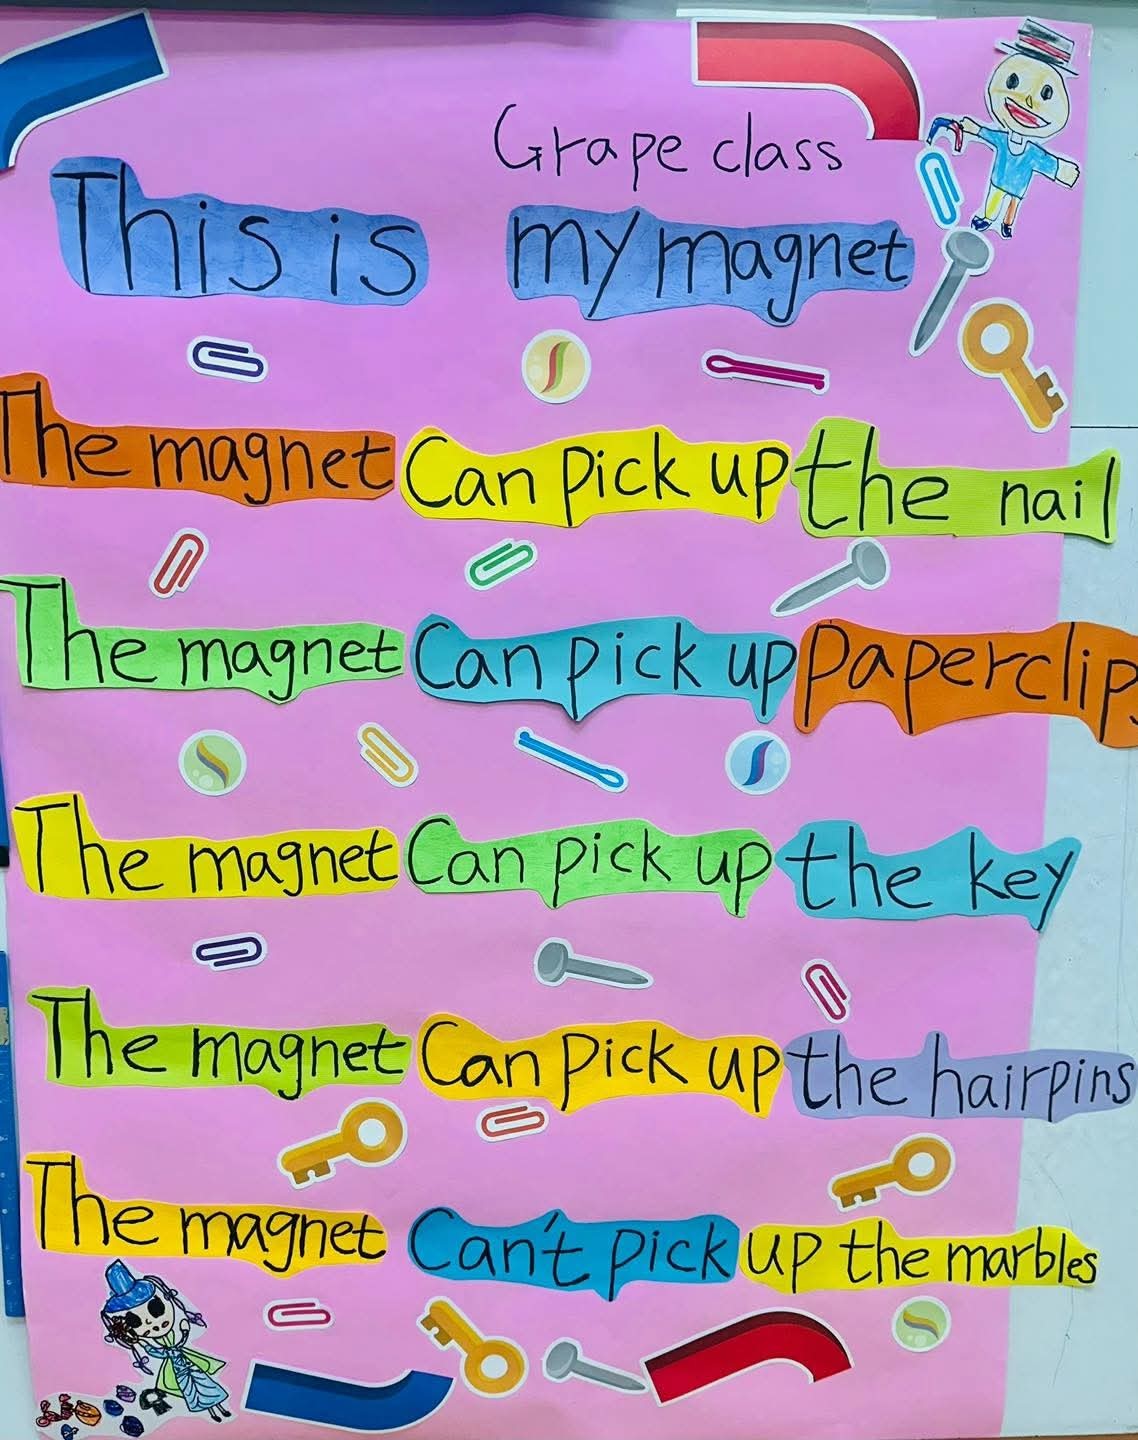 Grape class
This is my magnet
The magnet Can pick up the nail
The magnet Can pick up paperclips
The magnet Can pick up the key
The magnet Can pick up the hairpins
The magnet Can't pick up the marbles